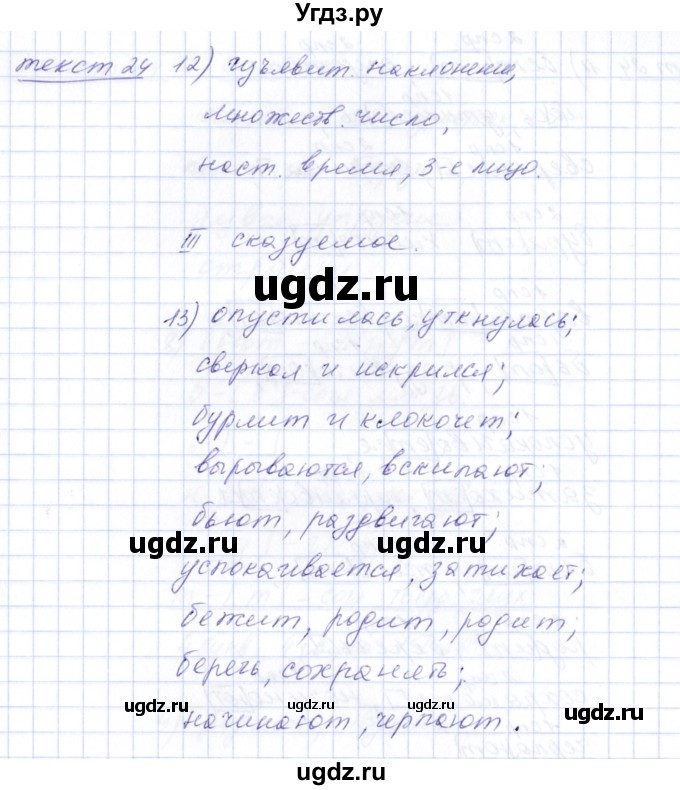 Угдз.ру
текст 24 12) изъявит. наклонение,
множеств. число,
наст. время, 3-е лицо.
III сказуемое.
ugdz.ru
13) опустилась, уткнулась;
сверкал и искрился;
бурлит и клокочет;
вырываются, вскипают;
бьют, раздвигают;
ugdz.ru ugdz.ru
успокаивается, затихает;
бежит, родит, родит;
беречь, сохранять;
ugdz.ru ugdz.ru
начинают, черпают.
ugdz.ru